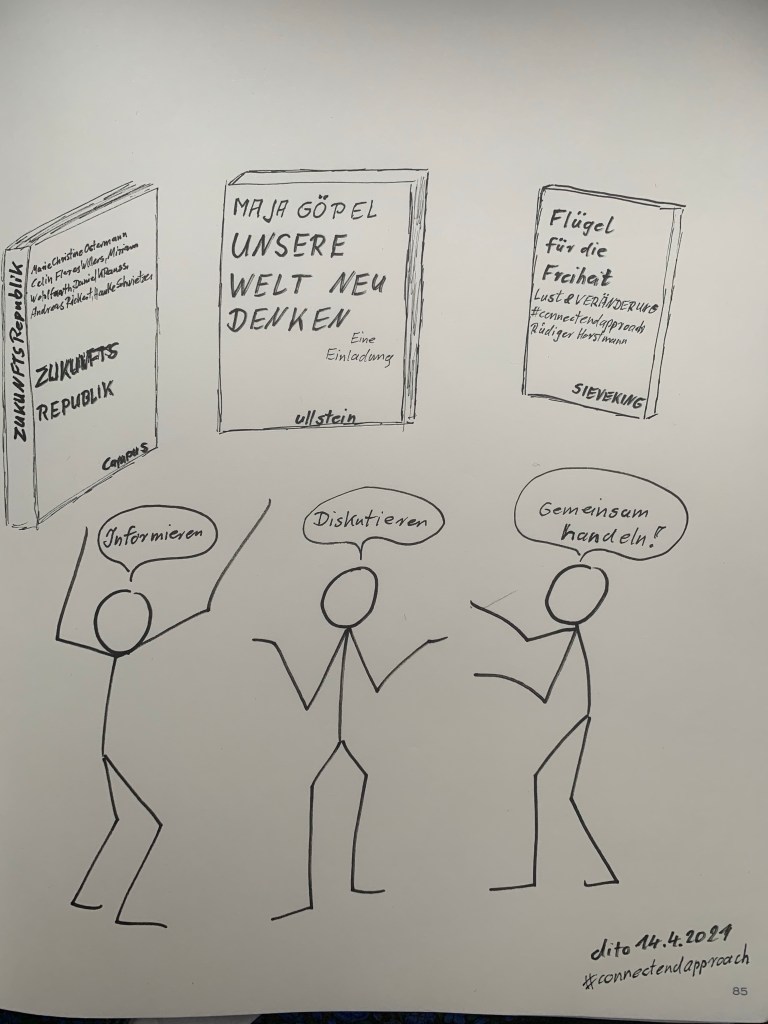 ZUKUNFTSRepublik
Marie Christine Ostermann
Celin Flores Willers, Miriam
Wohlfarth, Daniel Krauss
Andreas Rickert, Hauke Schwiezer
ZUKUNFTS
REPUBLIK
Campus
MAJA GÖPEL
UNSERE
WELT NEU
DENKEN
Eine
Einladung
ullstein
Flügel
für die
Freiheit
Lust & VERÄNDERUNG
#connectendapproach
Rüdiger Horstmann
SIEVEKING
Informieren
Diskutieren
Gemeinsam
handeln!
dito 14.4.2021
#connectendapproach
85